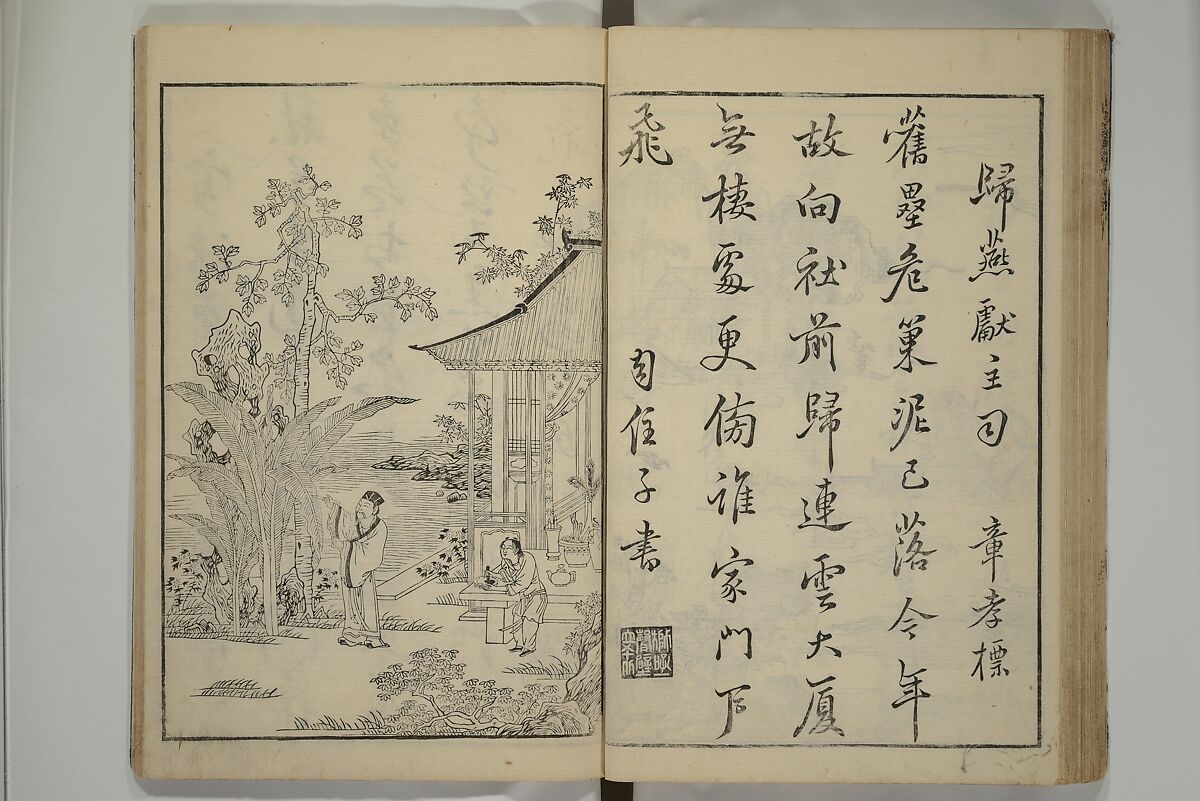 歸燕獻主司　章孝標
舊壘危巢泥已落今年
故向社前歸連雲大厦
無棲處更傍誰家門戶
飛